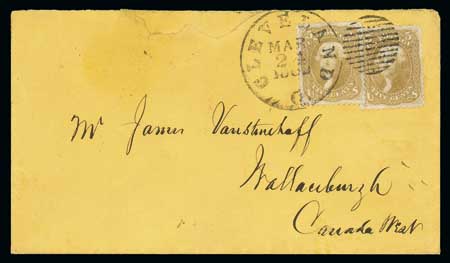 CLEVELAND O.
MAR
2
186
FIVE CENTS
Mr James
Wallaceburgh
Canada West